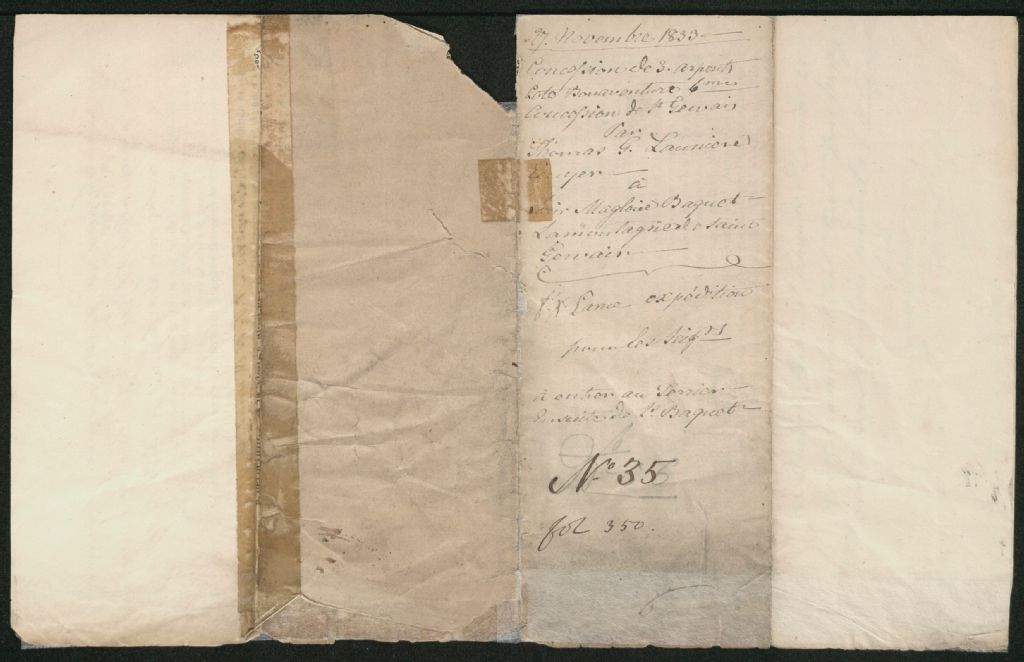 27. Novembre 1833
Concession de 3. arpents
Coté Bonaventure 6me
Concession de St Gervais
Par
Thomas G. Launiere
Ecuyer
à
Magloire Baquet
Lamontagne de Saint
Gervais
expédition
pour les
à au Terrier
Ensuite de Baquet
No 35
fol 350.